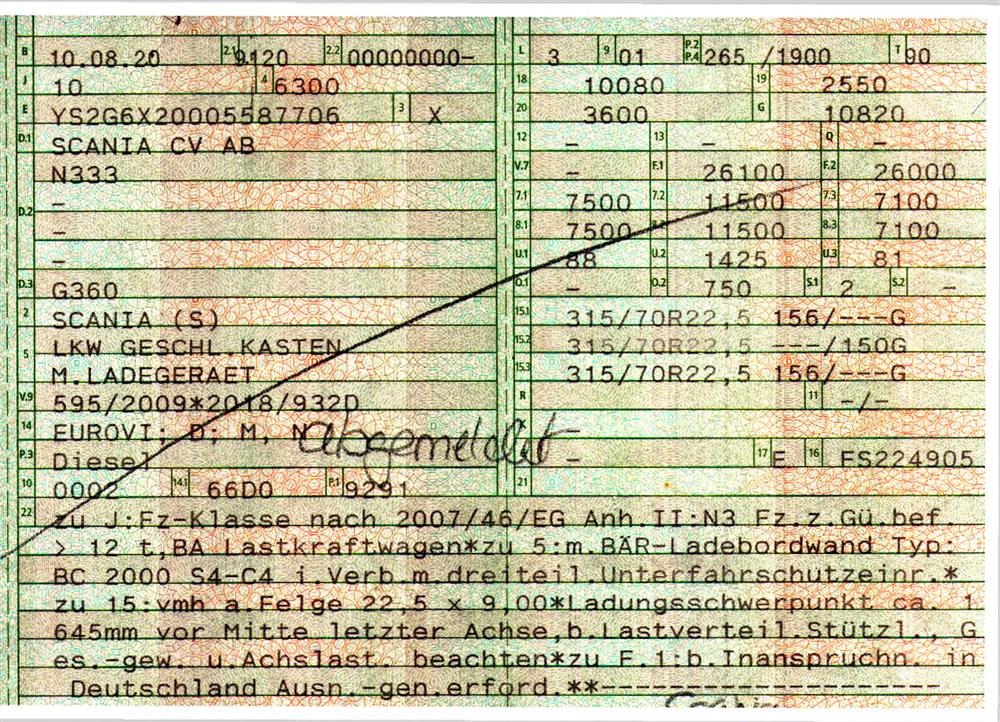 B 10.08.20 2.1 9120 2.2 00000000-
J 10 4 6300
E YS2G6X20005587706 3 X
D.1 SCANIA CV AB
N333
D.2 -
-
-
D.3 G360
2 SCANIA (S)
5 LKW GESCHL.KASTEN
M.LADEGERAET
V.9 595/2009*2018/932D
14 EUROVI; D; M, N
abgemeldet
P.3 Diesel
10 0002 14.1 66D0 P.1 9291
L 3 9 01 P.2 P.4 265 /1900 T 90
18 10080 19 2550
20 3600 G 10820
12 - 13 - Q -
V.7 - F.1 26100 F.2 26000
7.1 7500 7.2 11500 7.3 7100
8.1 7500 8.2 11500 8.3 7100
U.1 88 U.2 1425 U.3 81
O.1 - O.2 750 S.1 2 S.2 -
15.1 315/70R22,5 156/---G
15.2 315/70R22,5 ---/150G
15.3 315/70R22,5 156/---G
R 11 -/-
-
- 17 E 16 FS224905
21
22 zu J:Fz-Klasse nach 2007/46/EG Anh.II:N3 Fz.z.Gü.bef.
> 12 t,BA Lastkraftwagen*zu 5:m.BÄR-Ladebordwand Typ:
BC 2000 S4-C4 i.Verb.m.dreiteil.Unterfahrschutzeinr.*
zu 15:vmh a.Felge 22,5 x 9,00*Ladungsschwerpunkt ca. 1
645mm vor Mitte letzter Achse,b.Lastverteil.Stützl., G
es.-gew. u.Achslast. beachten*zu F.1:b.Inanspruchn. in
Deutschland Ausn.-gen.erford.**--------------------